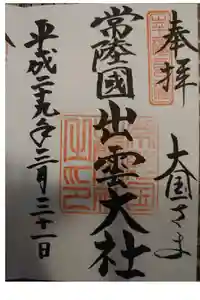 奉拝
大国さま
常陸國出雲大社
平成二十九年三月三十一日